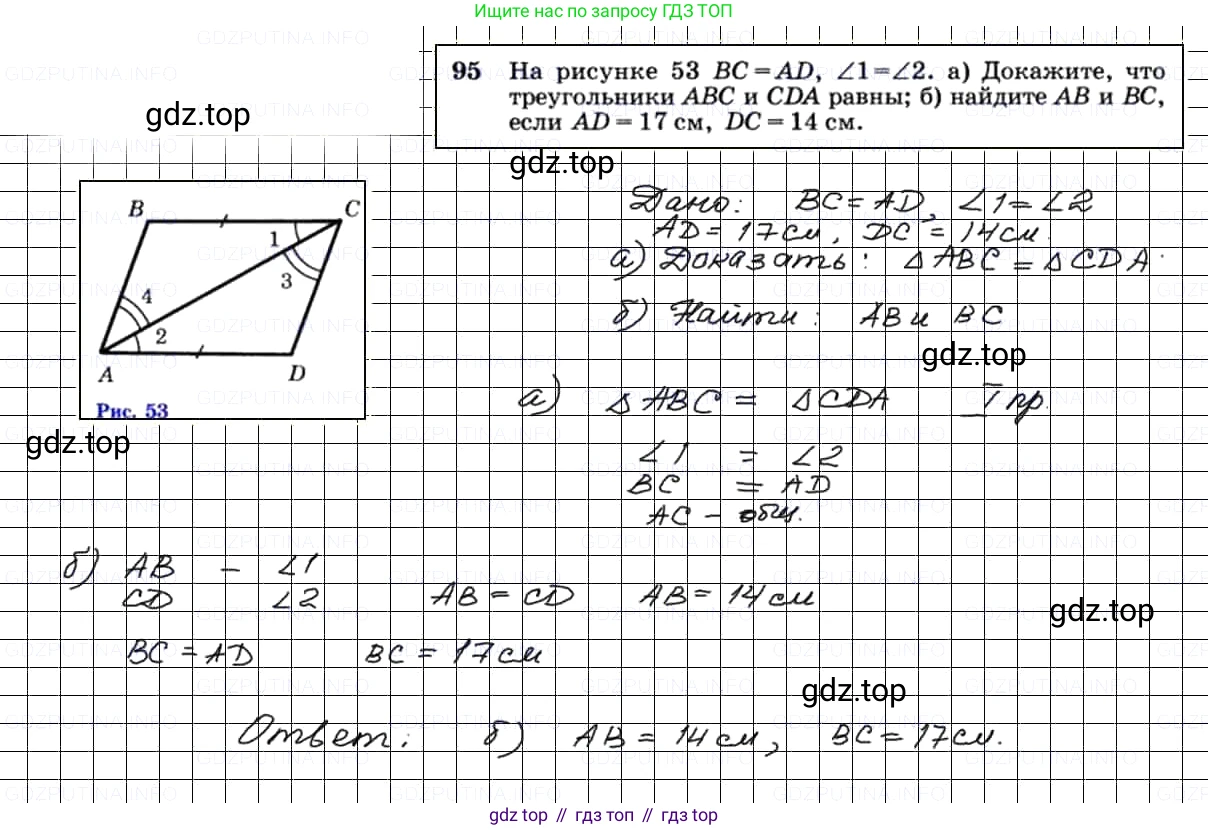 Ищите нас по запросу ГДЗ ТОП
95 На рисунке 53 BC = AD, ∠1 = ∠2. а) Докажите, что
треугольники ABC и CDA равны; б) найдите AB и BC,
если AD = 17 см, DC = 14 см.
gdz.top
gdz.top
B
C
1
3
4
2
A
D
Рис. 53
Дано: BC = AD, ∠1 = ∠2
AD = 17 см, DC = 14 см.
а) Доказать: △ABC = △CDA.
б) Найти: AB и BC
gdz.top
gdz.top
а) △ABC = △CDA I пр.
∠1 = ∠2
BC = AD
AC – общ.
б) AB – ∠1
CD ∠2 AB = CD AB = 14 см
gdz.top
BC = AD BC = 17 см
gdz.top
Ответ: б) AB = 14 см, BC = 17 см.
gdz top // гдз топ // гдз top
GDZPUTINA.INFO